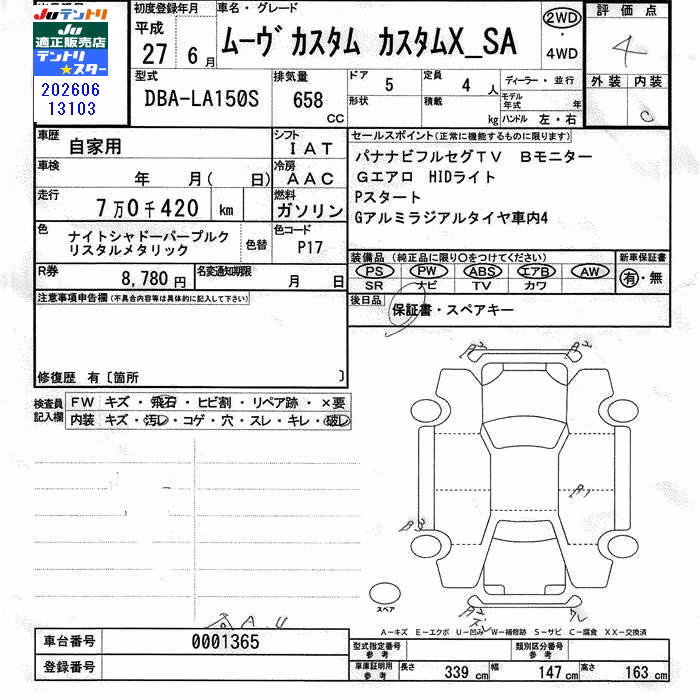 Juテントリ
Ju
適正販売店
テントリ
★スター
202606
13103
初度登録年月
平成
27年 6月
車名・グレード
ムーヴ カスタム カスタムX_SA
2WD
・
4WD
評価点
4
外装 内装
C
型式
DBA-LA150S
排気量
658 CC
ドア 5
定員 4人
形状
積載 kg
ディーラー・並行
モデル年式 年
ハンドル 左・右
車歴
自家用
シフト
IAT
車検
年 月( 日)
冷房
AAC
走行
7万0千420 km
燃料
ガソリン
色
ナイトシャドーパープルク
リスタルメタリック
色替
色コード
P17
R券
8,780円
名変通知期限
月 日
セールスポイント(正常に機能するものに限ります)
パナナビフルセグTV Bモニター
Gエアロ HIDライト
Pスタート
Gアルミラジアルタイヤ車内4
装備品 (純正品に限り〇をつけてください)
PS PW ABS エアB AW
SR ナビ TV カワ
新車保証書
有・無
後日品
保証書・スペアキー
注意事項申告欄(不具合内容等は具体的に記入して下さい)
修復歴 有〔箇所 〕
検査員
記入欄
FW キズ・飛石・ヒビ割・リペア跡・×要
内装 キズ・汚レ・コゲ・穴・スレ・キレ・破レ
A2 A2
B1
A3
A2
スペア
A.U
A-キズ E-エクボ U-凹み W-補修跡 S-サビ C-腐食 XX-交換済
車台番号
0001365
登録番号
型式指定番号
参考
類別区分番号
参考
車庫証明用
参考
長さ 339cm 幅 147cm 高さ 163cm